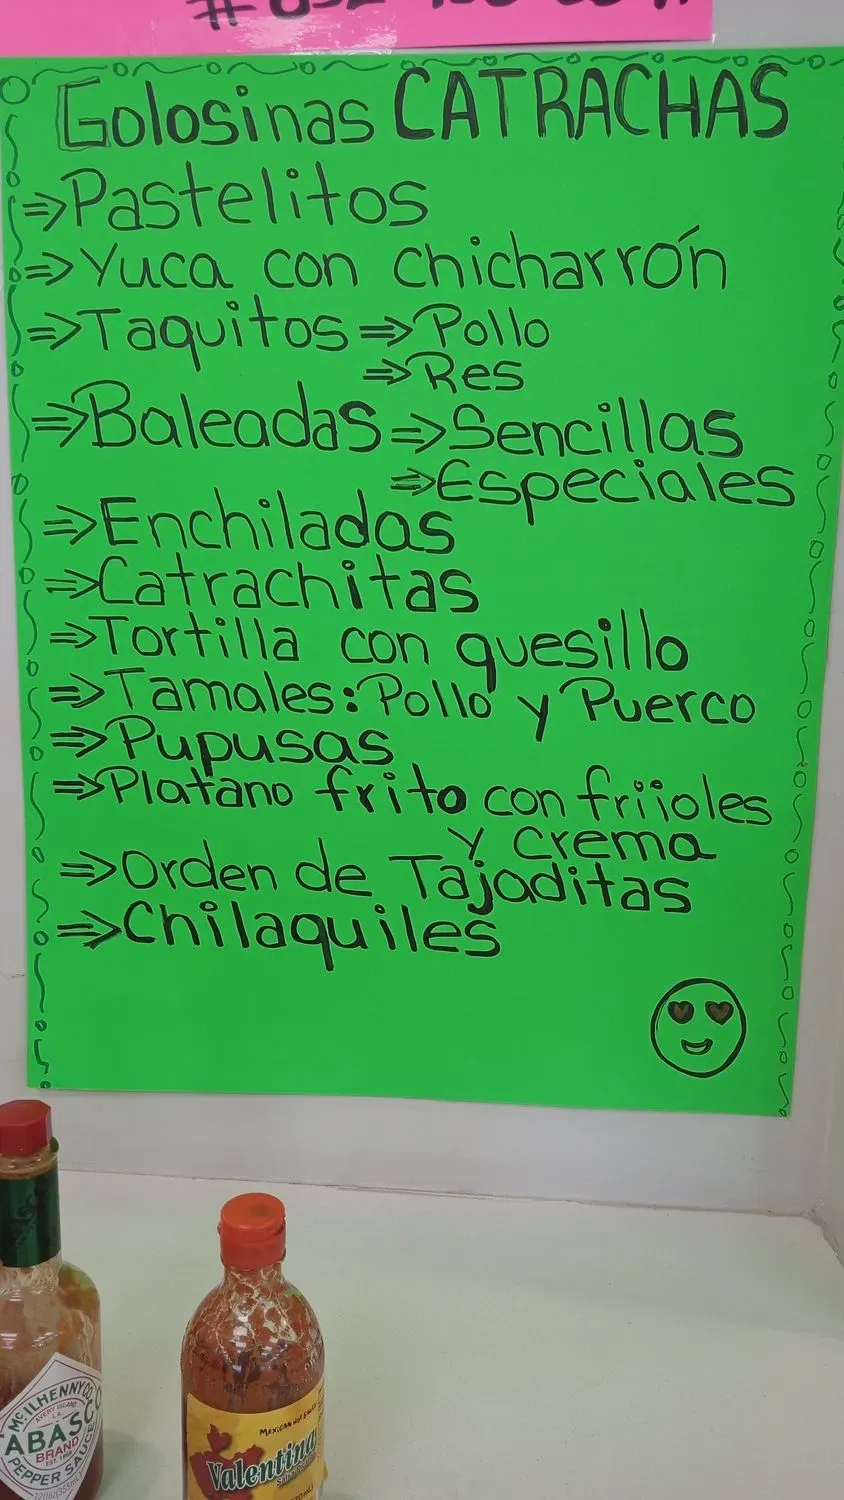 Golosinas CATRACHAS
⇒Pastelitos
⇒Yuca con chicharrón
⇒Taquitos⇒Pollo
⇒Res
⇒Baleadas⇒Sencillas
⇒Especiales
⇒Enchiladas
⇒Catrachitas
⇒Tortilla con quesillo
⇒Tamales: Pollo y Puerco
⇒Pupusas
⇒Platano frito con frijoles
y crema
⇒Orden de Tajaditas
⇒Chilaquiles
McILHENNY CO.
AVERY ISLAND
LA.
TABASCO
BRAND
EST. 1868
PEPPER SAUCE
MEXICAN HOT SAUCE
Valentina